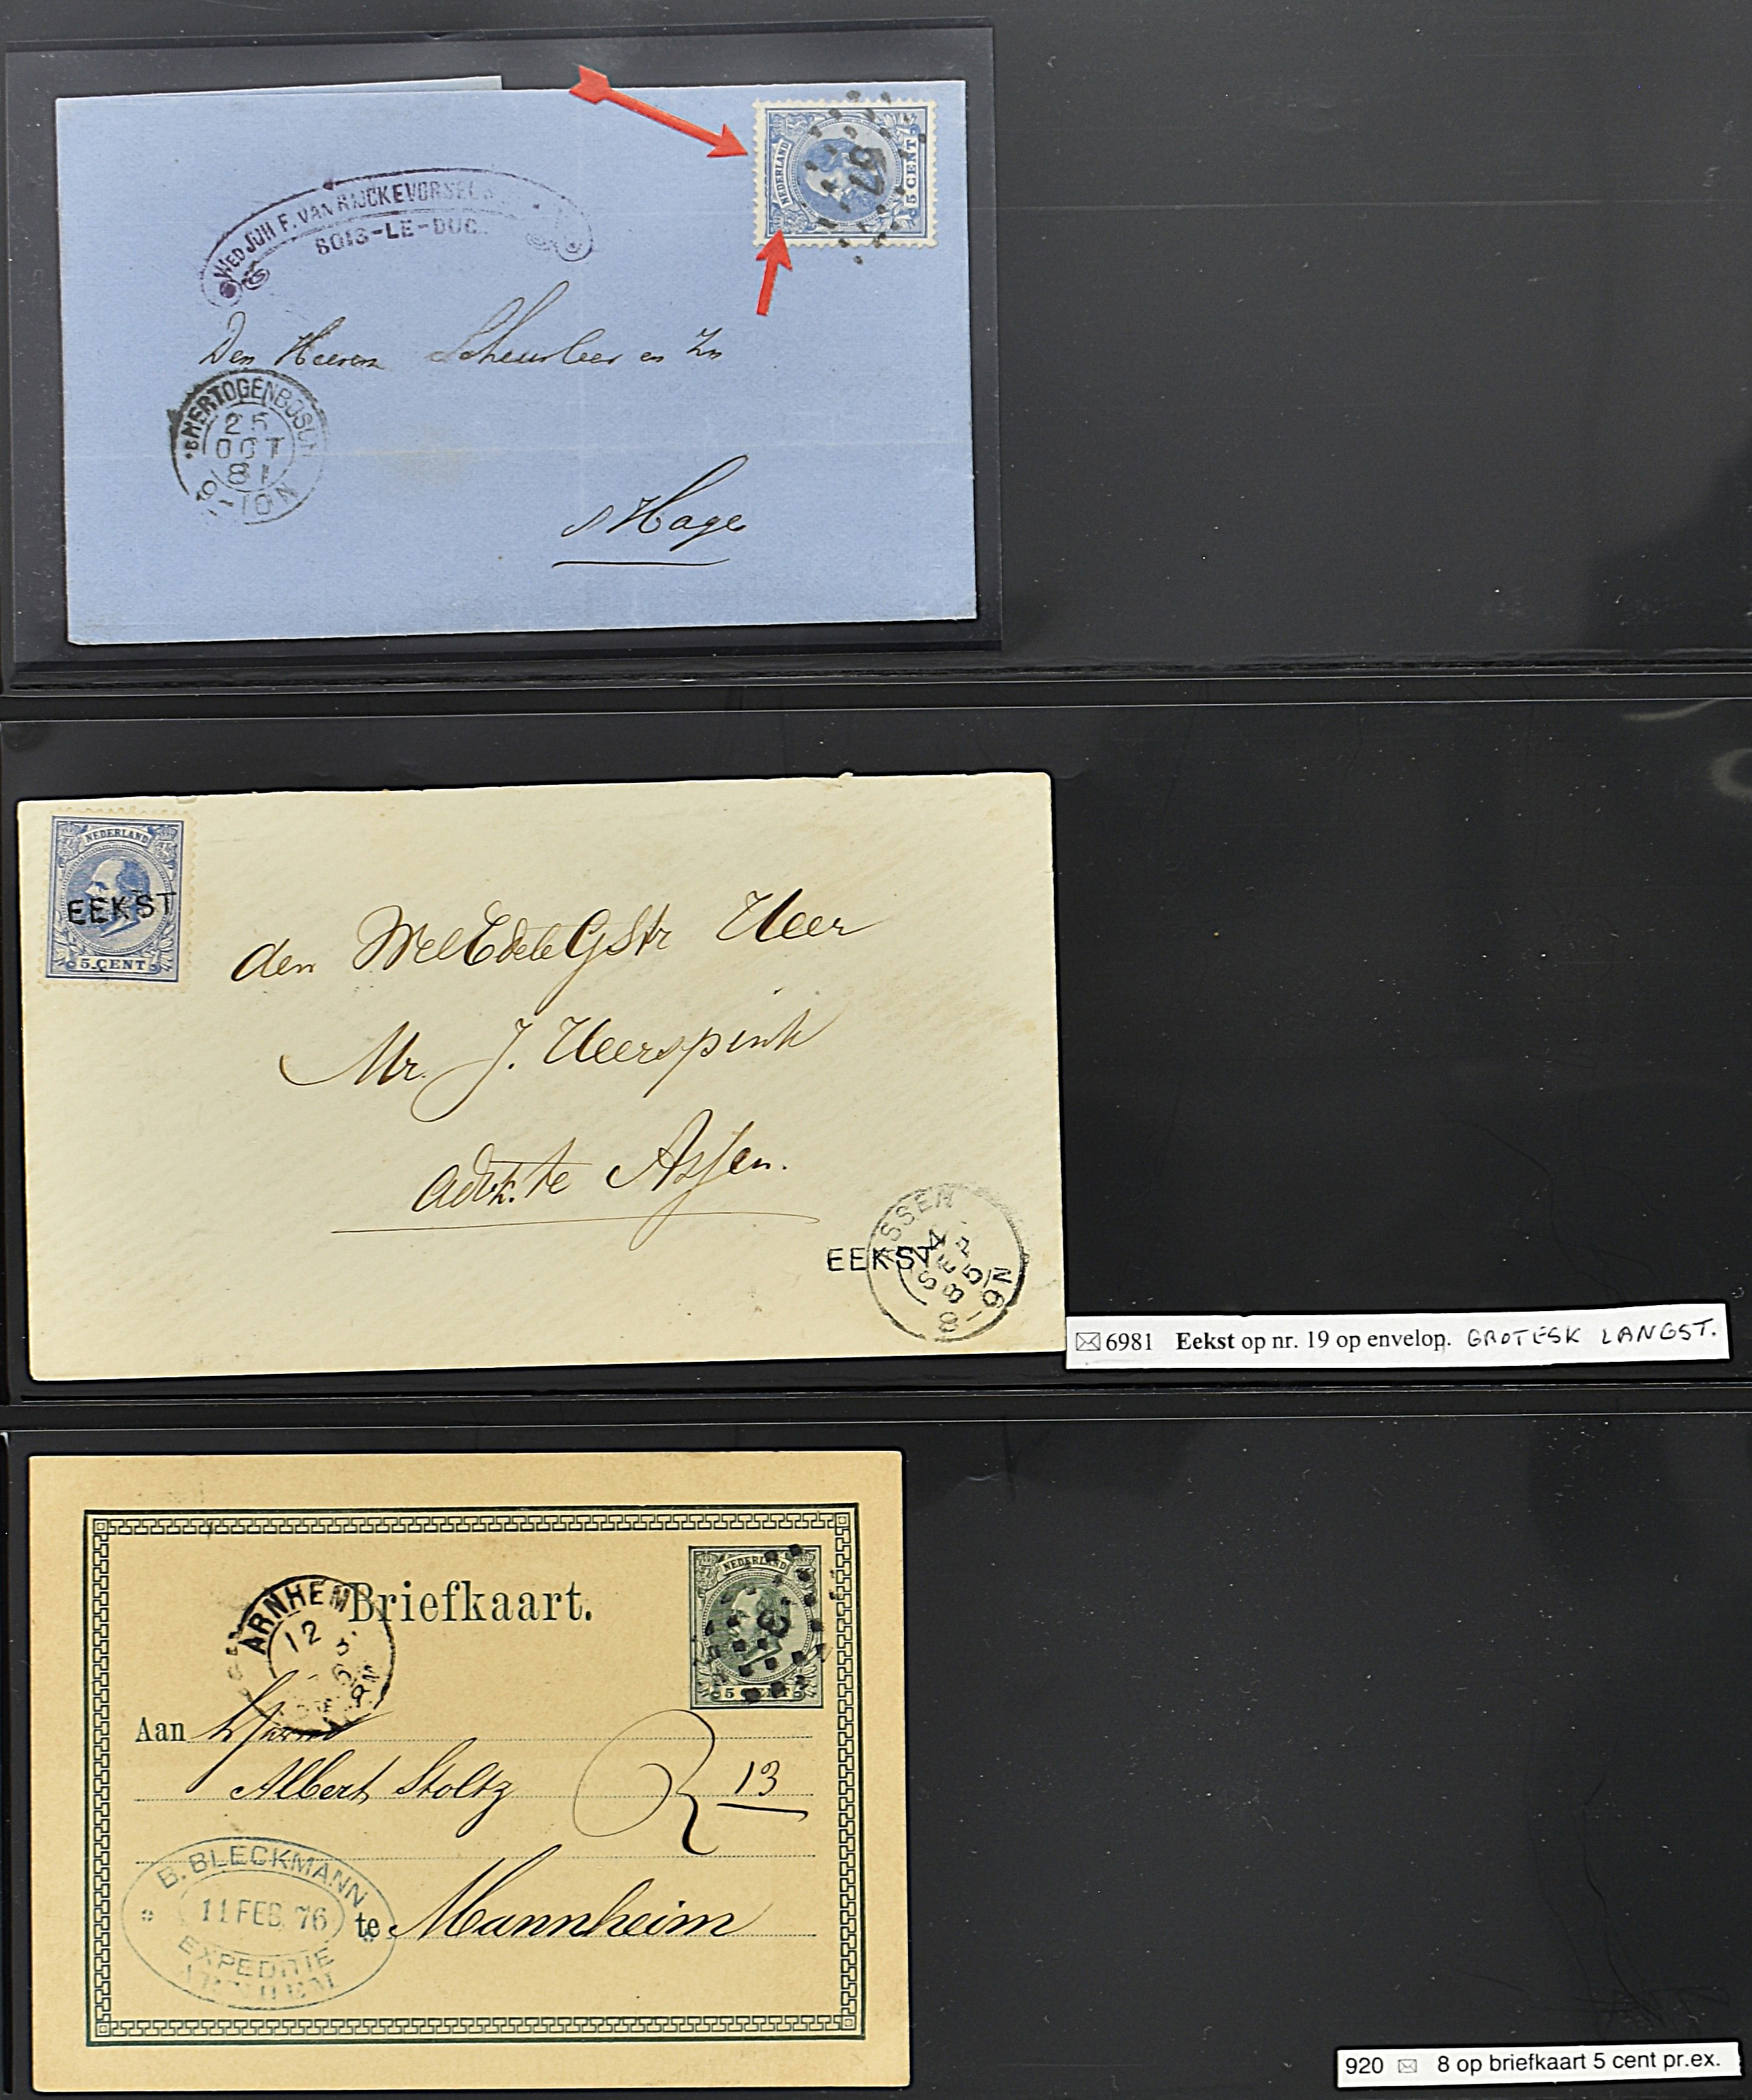 WED JOH F. VAN RIJCKEVORSEL
BOIS-LE-DUC.
NEDERLAND
5 CENT
57
Den Heeren Scheurleer en Zn
'sHERTOGENBOSCH
25
OCT
81
9-10N
s Hage
NEDERLAND
EEKST
5.CENT
den WelEdelGStr Heer
Mr. J. Heerspink
advk. te Assen.
ASSEN
EEKST
4
SEP
85
8-9N
6981 Eekst op nr. 19 op envelop. GROTESK LANGST.
NEDERLAND
5 CENT
Briefkaart.
ARNHEM
12
Aan
Albert Stoltz
R 13
B. BLECKMANN
11 FEB. 76
EXPEDITIE
ARNHEM
te Mannheim
920 8 op briefkaart 5 cent pr.ex.